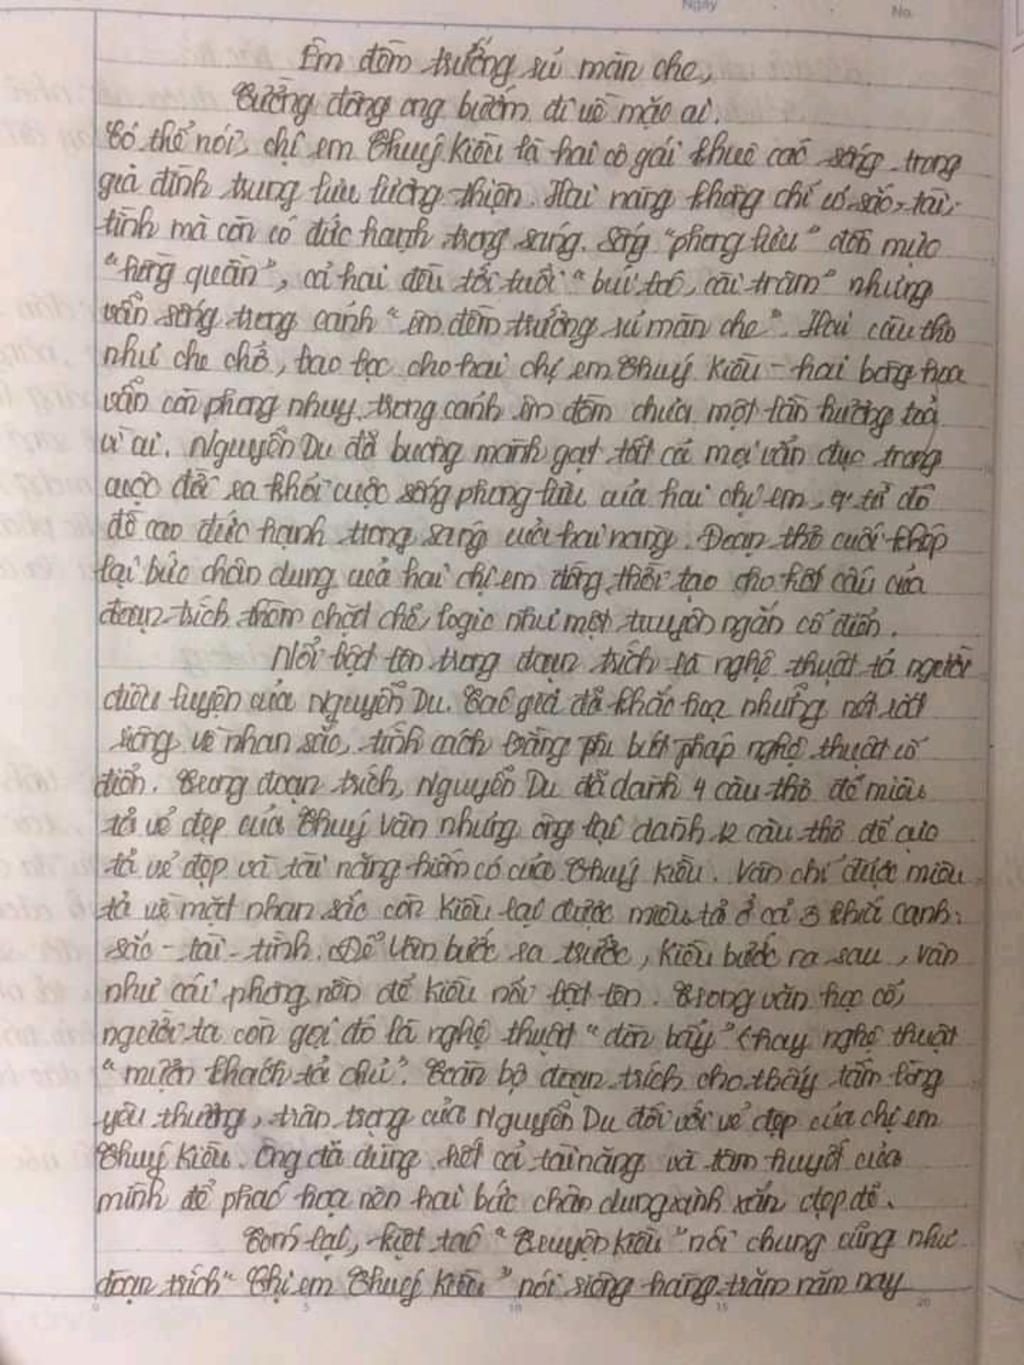 Ngày
No.
Êm đềm trướng rủ màn che,
Tường đông ong bướm đi về mặc ai.
Có thể nói, chị em Thuý Kiều là hai cô gái khuê các sống trong
gia đình trung lưu lương thiện. Hai nàng không chỉ có sắc, tài,
tình mà còn có đức hạnh trong sáng. Sống "phong lưu" đến mực
"hồng quần", cả hai đều tới tuổi "búi tóc, cài trâm" nhưng
vẫn sống trong cảnh "êm đềm trướng rủ màn che". Hai câu thơ
như che chở, bao bọc cho hai chị em Thuý Kiều - hai bông hoa
vẫn còn phong nhuỵ trong cảnh êm đềm chưa một lần hương toả
vì ai. Nguyễn Du đã buông mành gạt tất cả mọi vẩn đục trong
cuộc đời ra khỏi cuộc sống phong lưu của hai chị em, từ đó
đề cao đức hạnh trong sáng của hai nàng. Đoạn thơ cuối khép
lại bức chân dung của hai chị em đồng thời tạo cho kết cấu của
đoạn trích thêm chặt chẽ, logic như một truyện ngắn cổ điển.
Nổi bật lên trong đoạn trích là nghệ thuật tả người
điêu luyện của Nguyễn Du. Tác giả đã khắc hoạ những nét rất
riêng về nhan sắc, tính cách bằng thi bút pháp nghệ thuật cổ
điển. Trong đoạn trích, Nguyễn Du đã dành 4 câu thơ để miêu
tả vẻ đẹp của Thuý Vân nhưng ông lại dành 12 câu thơ để cực
tả vẻ đẹp và tài năng hiếm có của Thuý Kiều. Vân chỉ được miêu
tả về mặt nhan sắc còn Kiều lại được miêu tả ở cả 3 khía cạnh:
sắc - tài - tình. Để Vân bước ra trước, Kiều bước ra sau, Vân
như cái phông nền để Kiều nổi bật lên. Trong văn học cổ,
người ta còn gọi đó là nghệ thuật "đòn bẩy" (hay nghệ thuật
"mượn khách tả chủ". Toàn bộ đoạn trích cho thấy tấm lòng
yêu thương, trân trọng của Nguyễn Du đối với vẻ đẹp của chị em
Thuý Kiều. Ông đã dùng hết cả tài năng và tâm huyết của
mình để phác hoạ nên hai bức chân dung xinh xắn, đẹp đẽ.
Tóm lại, kiệt tác "Truyện Kiều" nói chung cũng như
đoạn trích "Chị em Thuý Kiều" nói riêng hàng trăm năm nay
0 5 10 15 20